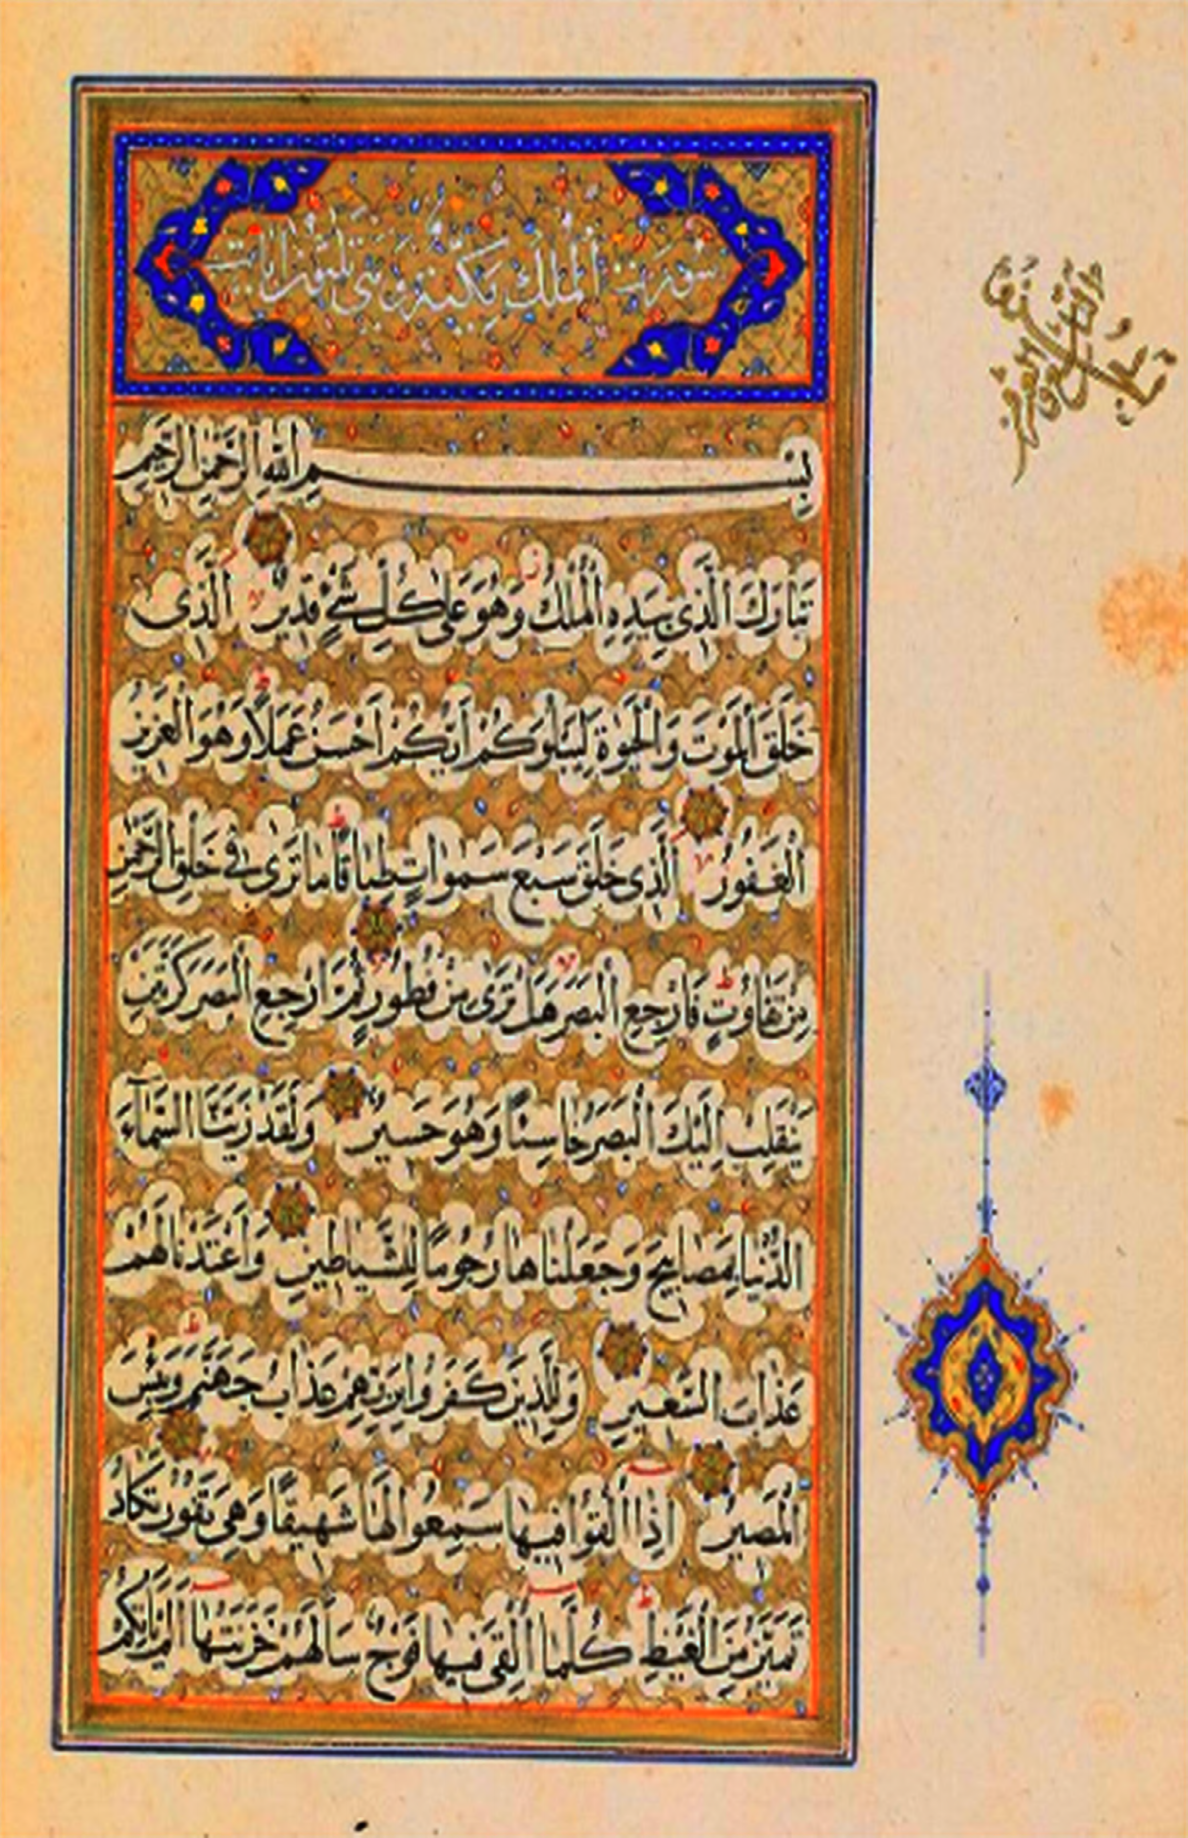 سورة الملك مكية وهي ثلثون اياٰت
بِسْمِ اللّٰهِ الرَّحْمٰنِ الرَّحِيمِ
تَبَارَكَ الَّذِى بِيَدِهِ الْمُلْكُ وَهُوَ عَلٰى كُلِّ شَىْءٍ قَدِيرٌ الَّذِى
خَلَقَ الْمَوْتَ وَالْحَيٰوةَ لِيَبْلُوَكُمْ اَيُّكُمْ اَحْسَنُ عَمَلًا وَهُوَ الْعَزِيزُ
الْغَفُورُ الَّذِى خَلَقَ سَبْعَ سَمٰوَاتٍ طِبَاقًا مَا تَرٰى فِى خَلْقِ الرَّحْمٰنِ
مِنْ تَفَاوُتٍ فَارْجِعِ الْبَصَرَ هَلْ تَرٰى مِنْ فُطُورٍ ثُمَّ ارْجِعِ الْبَصَرَ كَرَّتَيْنِ
يَنْقَلِبْ اِلَيْكَ الْبَصَرُ خَاسِئًا وَهُوَ حَسِيرٌ وَلَقَدْ زَيَّنَّا السَّمَآءَ
الدُّنْيَا بِمَصَابِيحَ وَجَعَلْنَاهَا رُجُومًا لِلشَّيَاطِينِ وَاَعْتَدْنَا لَهُمْ
عَذَابَ السَّعِيرِ وَلِلَّذِينَ كَفَرُوا بِرَبِّهِمْ عَذَابُ جَهَنَّمَ وَبِئْسَ
الْمَصِيرُ اِذَا اُلْقُوا فِيهَا سَمِعُوا لَهَا شَهِيقًا وَهِىَ تَفُورُ تَكَادُ
تَمَيَّزُ مِنَ الْغَيْظِ كُلَّمَا اُلْقِىَ فِيهَا فَوْجٌ سَاَلَهُمْ خَزَنَتُهَا اَلَمْ يَاْتِكُمْ